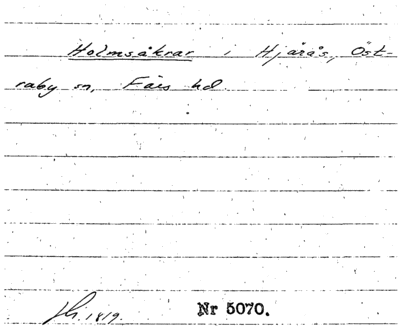 Holmsåkrar i Hjärås, Öst-
raby sn, Färs hd.
1819. Nr 5070.